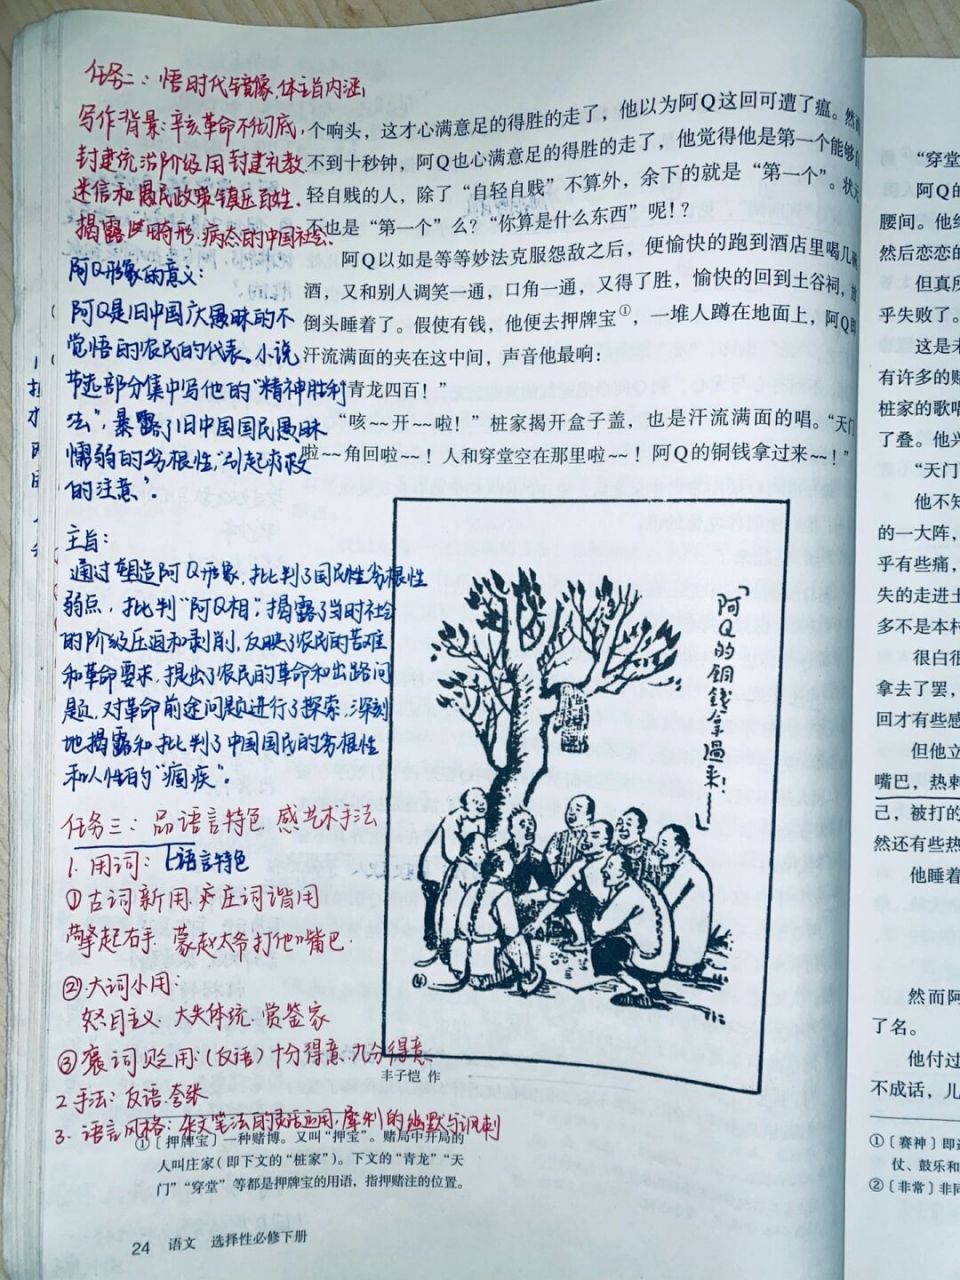 任务二：悟时代镜像，体主旨内涵
写作背景：辛亥革命不彻底，
封建统治阶级用封建礼教
迷信和愚民政策镇压百姓.
揭露畸形.病态的中国社会.
阿Q形象的意义：
阿Q是旧中国广愚昧的不
觉悟的农民的代表。小说
节选部分集中写他的“精神胜利
法”，暴露了旧中国国民愚昧
懦弱的劣根性“引起疗救
的注意”
主旨：
通过塑造阿Q形象，批判了国民性劣根性
弱点，批判“阿Q相”；揭露了当时社会
的阶级压迫和剥削，反映了农民的苦难
和革命要求，提出了农民的革命和出路问
题，对革命前途问题进行了探索，深刻
地揭露和批判了中国国民的劣根性
和人性的“痼疾”
任务三：品语言特色 感艺术手法
1. 用词：语言特色
①古词新用.庄词谐用
“擎起右手 蒙赵太爷打他”嘴巴.
②大词小用.
怒目主义.大失体统.赏鉴家
③褒词贬用.(反语)十分得意.九分得意
2.手法：反语.夸张
3. 语言风格：杂文笔法的灵活运用，犀利的幽默与讽刺
个响头，这才心满意足的得胜的走了，他以为阿Q这回可遭了瘟。然而
不到十秒钟，阿Q也心满意足的得胜的走了，他觉得他是第一个能够自
轻自贱的人，除了“自轻自贱”不算外，余下的就是“第一个”。状元
不也是“第一个”么？“你算是什么东西”呢！？
阿Q以如是等等妙法克服怨敌之后，便愉快的跑到酒店里喝几
酒，又和别人调笑一通，口角一通，又得了胜，愉快的回到土谷祠，放
倒头睡着了。假使有钱，他便去押牌宝①，一堆人蹲在地面上，阿Q即
汗流满面的夹在这中间，声音他最响：
“青龙四百！”
“咳~~开~~啦！ 桩家揭开盒子盖，也是汗流满面的唱。“天门
啦~~角回啦~~！人和穿堂空在那里啦~~！阿Q的铜钱拿过来~~！”
阿Q的铜钱拿过来！
丰子恺 作
①〔押牌宝〕一种赌博。又叫“押宝”。赌局中开局的
人叫庄家（即下文的“桩家”）。下文的“青龙”“天
门”“穿堂”等都是押牌宝的用语，指押赌注的位置。
24 语文 选择性必修下册
“穿堂
阿Q的
腰间。他终
然后恋恋的
但真所
乎失败了。
这是未
有许多的赌
桩家的歌唱
了叠。他兴
“天门
他不知
的一大阵，
乎有些痛，
失的走进土
多不是本村
很白很
拿去了罢，
回才有些感
但他立
嘴巴，热刺
己，被打的
然还有些热
他睡着
然而阿
了名。
他付过
不成话，儿
①〔赛神〕即迎
仗、鼓乐和
②〔非常〕非同